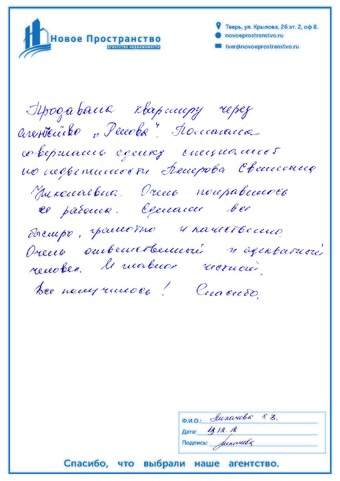 Новое Пространство
АГЕНТСТВО НЕДВИЖИМОСТИ
Тверь, ул. Крылова, 26 эт. 2, оф 8.
novoeprostranstvo.ru
tver@novoeprostranstvo.ru
Продавала квартиру через
агентство „
Помогала
совершать сделку специалист
по недвижимости Петрова Светлана
Николаевна. Очень понравилось
ее работа. Сделали все
быстро, грамотно и качественно
Очень ответственный и адекватный
человек. И главное честной.
Все получилось! Спасибо.
Ф.И.О.:
Дата: 19.12.18
Подпись:
Спасибо, что выбрали наше агентство.